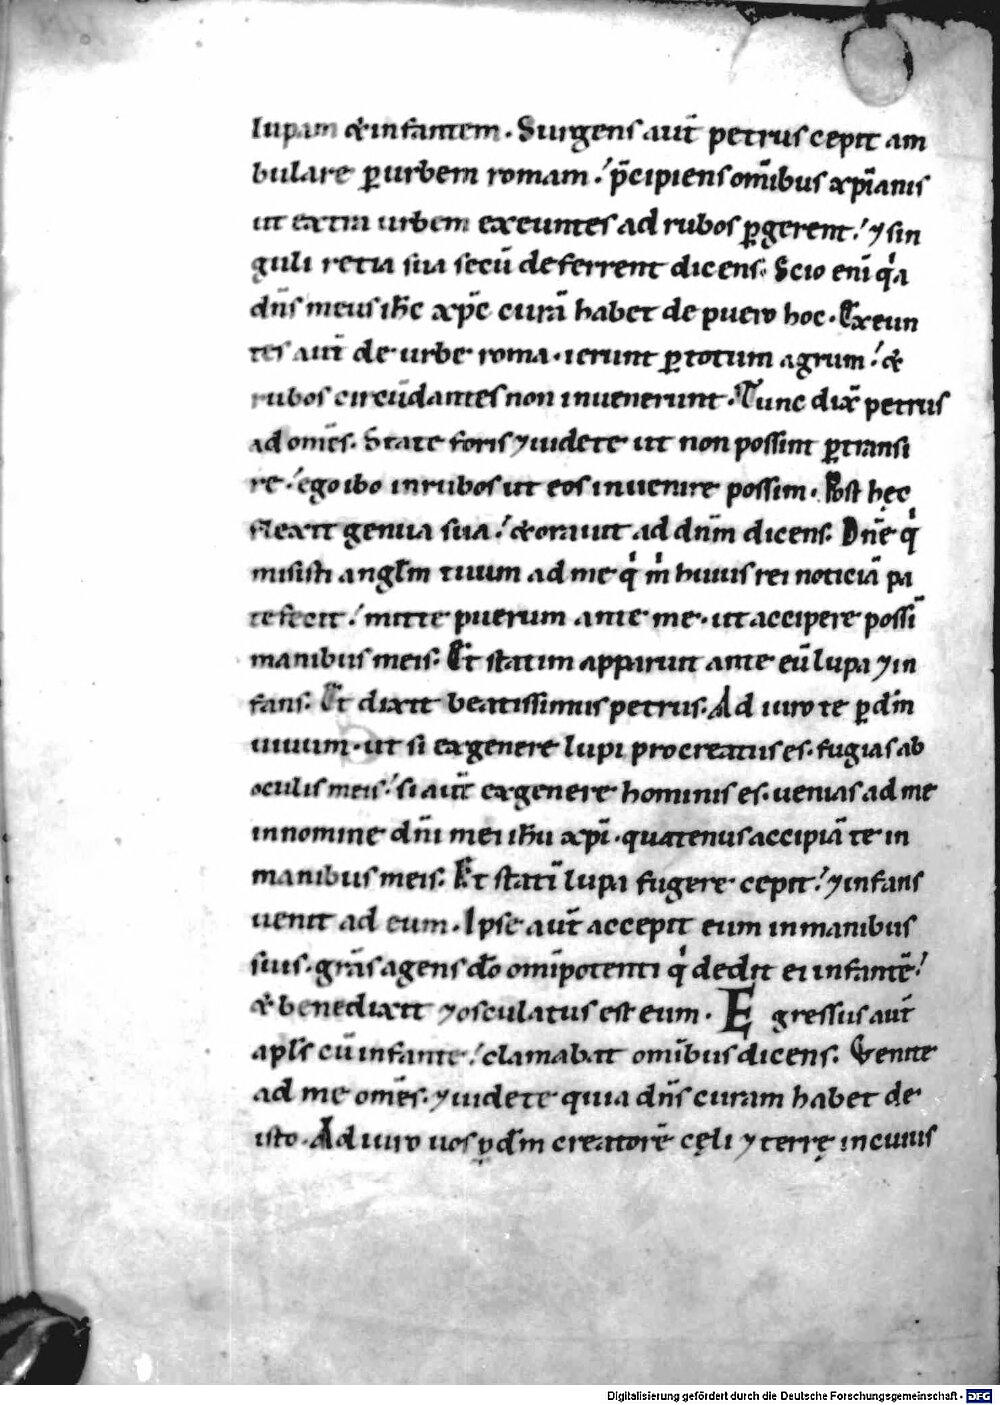 lupam &infantem. Surgens aut̄ petrus cepit am
bulare ꝑ urbem romam. p̄cipiens om̄ibus xp̄ianis
ut extra urbem exeuntes ad rubos ꝑgerent. ⁊ sin
guli retia sua secū deferrent dicens. Scio enī qͥa
dn̄s meus ih̄c xp̄c curā habet de puero hoc. Exeun
tes aut̄ de urbe roma. ierunt ꝑ totum agrum. &
rubos circūdantes non inuenerunt. Tunc dix̄ petrus
ad om̄es. State foris ⁊uidete ut non possint ꝑtransi
re. ego ibo in rubos ut eos inuenire possim. Post hęc
flexit genua sua. &orauit ad dn̄m dicens. Dn̄e qͥ
misisti angl̄m tuum ad me qͥ mͥ huius rei noticiā pa
tefecit. mitte puerum ante me. ut accipere possī
manibus meis. Et statim apparuit ante eū lupa ⁊in
fans. Et dixit beatissimus petrus. Ad iuro te ꝑ dm̄
uiuum. ut si ex genere lupi procreatus es. fugias ab
oculis meis. si aut̄ ex genere hominis es. uenias ad me
in nomine dn̄i mei ih̄u xp̄i. quatenus accipiā te in
manibus meis. Et statī lupa fugere cepit. ⁊infans
uenit ad eum. Ipse aut̄ accepit eum in manibus
suis. gr̄as agens do̅ omīpotenti qͥ dedit ei infantē.
&benedixit ⁊osculatus est eum. Egressus aut̄
apl̄s cū infante. clamabat om̄ibus dicens. Venite
ad me om̄es. ⁊uidete quia dn̄s curam habet de
isto. Ad iuro uos ꝑ dm̄ creatorē cęli ⁊ terrę in cuius
Digitalisierung gefördert durch die Deutsche Forschungsgemeinschaft - DFG